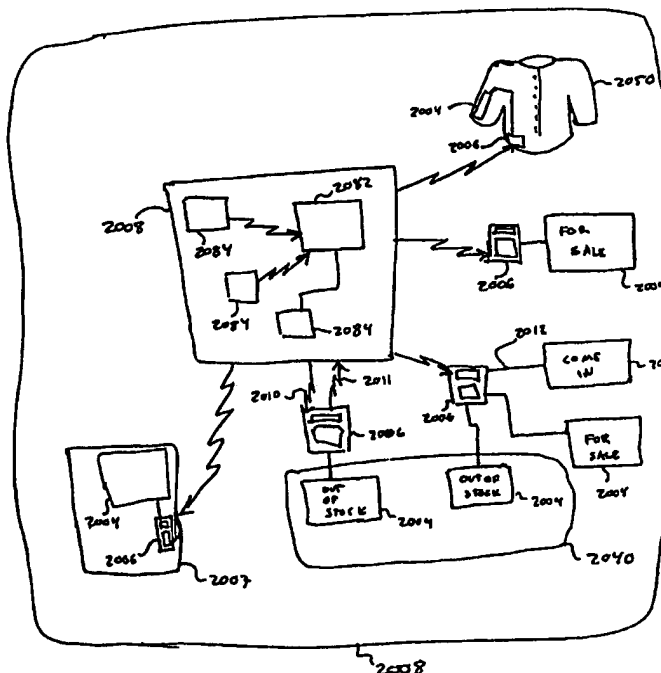 2050
2004
2006
2082
2008
2084
2084
2084
FOR
SALE
2006
2012
COME
IN
2010
2011
2006
2006
FOR
SALE
2004
OUT
OF
STOCK
2004
OUT OF
STOCK
2004
2004
2006
2007
2040
2008